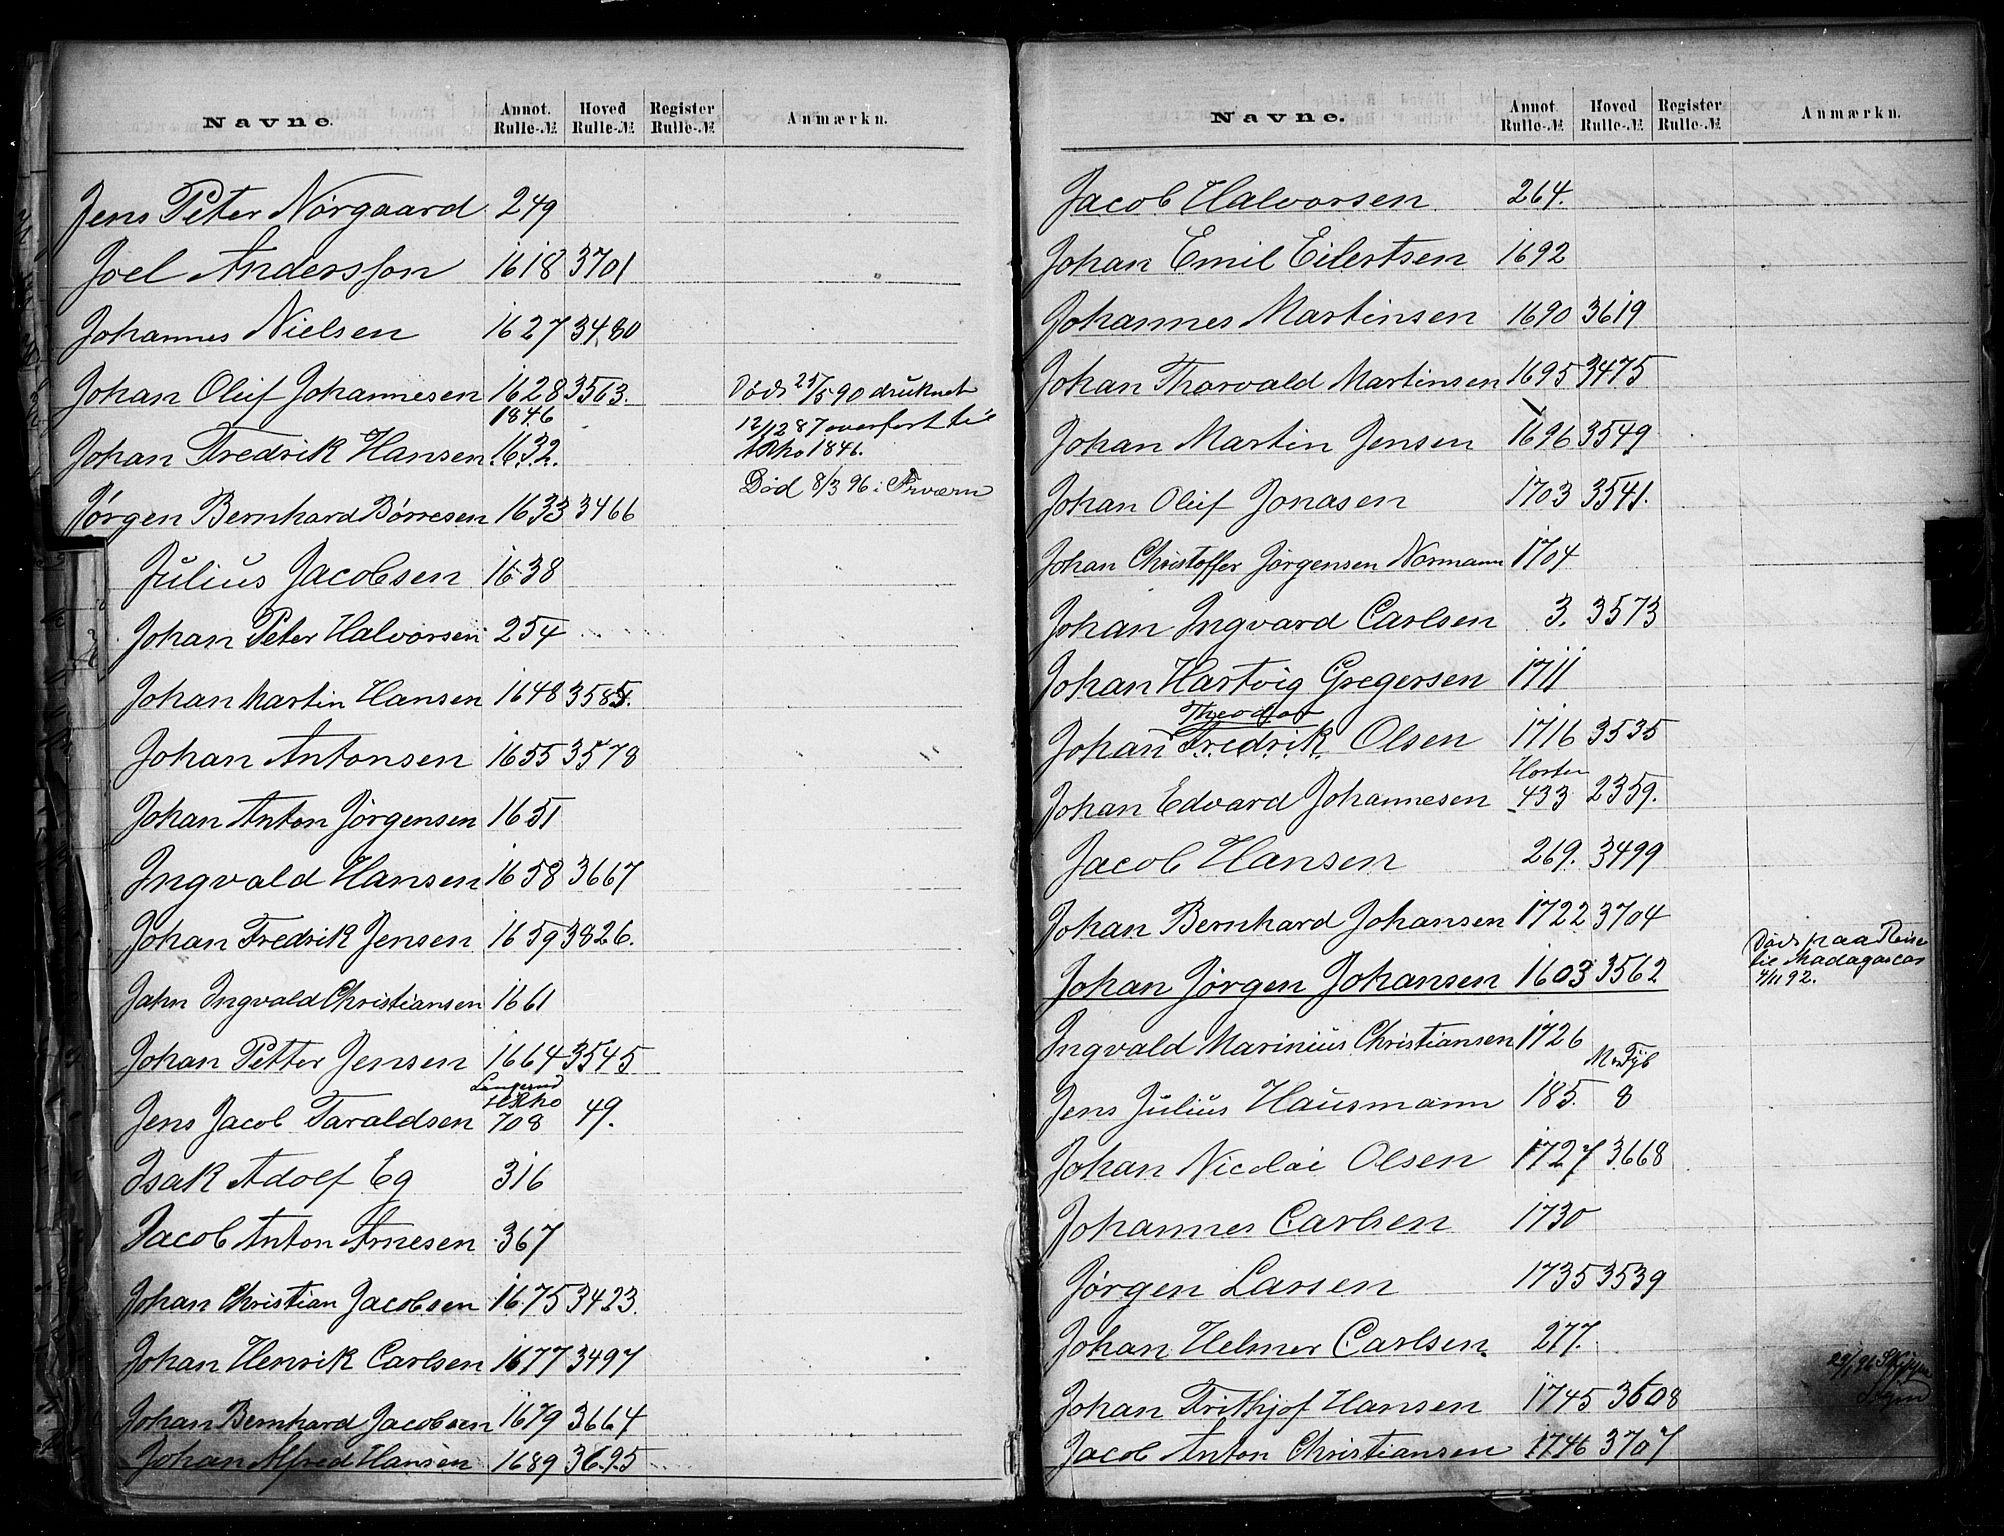 Navne. Annot. Rulle-№ Hoved Rulle-№ Register Rulle-№ Anmærkn.
Jens Peter Nørgaard 249
Joel Andersson 1618 3701
Johannes Nielsen 1627 3480
Johan Oluf Johannesen 1628 3563. Død 25/5 90 druknet
1846 12/12 87 overført til
Johan Fredrik Hansen 1632. ARho 1846.
Død 8/3 96 i
Jørgen Bernhard Børresen 1633 3466
Julius Jacobsen 1638
Johan Peter Halvorsen 254
Johan Martin Hansen 1648 3585.
Johan Antonsen 1655 3578
Johan Anton Jørgensen 1651
Ingvald Hansen 1658 3667
Johan Fredrik Jensen 1659 3826.
Jahn Ingvald Christiansen 1661
Johan Petter Jensen 1664 3545
Langesund
HRho
Jens Jacob Taraldsen 708 49.
Isak Adolf Eg 316
Jacob Anton Arnesen 367
Johan Christian Jacobsen 1675 3423.
Johan Henrik Carlsen 1677 3497
Johan Bernhard Jacobsen 1679 3664
Johan Alfred Hansen 1689 3695
Navne. Annot Rulle-№ Hoved Rulle-№ Register Rulle-№ Anmærkn.
Jacob Halvorsen 264.
Johan Emil Eilertsen 1692
Johannes Martinsen 1690 3619
Johan Thorvald Martinsen 1695 3475
Johan Martin Jensen 1696 3549
Johan Oluf Jonasen 1703 3541.
Johan Christoffer Jørgensen Normann 1704
Johan Ingvard Carlsen 3. 3573
Johan Hartvig Gregersen 1711
Theodor
Johan Fredrik Olsen 1716 3535
Horten
Johan Edvard Johannesen 433 2359.
Jacob Hansen 269. 3499
Johan Bernhard Johansen 1722 3704
Død paa Reise
til Madagascar
Johan Jørgen Johansen 1603 3562 4/11 92.
Ingvald Marinius Christiansen 1726
Jens Julius Hausmann 185. 8
Johan Nicolai Olsen 1727 3668
Johannes Carlsen 1730
Jørgen Larsen 1735 3539
Johan Helmer Carlsen. 277.
Johan Frithjof Hansen 1745 3608
Jacob Anton Christiansen 1746 3707